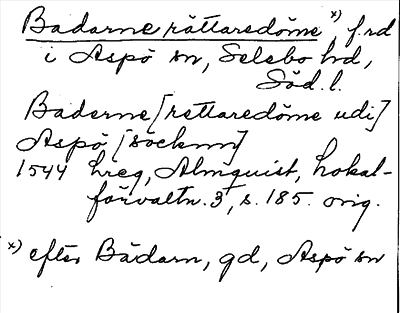 Badarne rättaredöme x), f.rd
i Aspö sn, Selebo hd,
Söd. l.
Baderne [rettaredöme udi]
Aspö [socknn]
1544 hreg, Almquist, Lokal-
förvaltn. 3, s. 185. orig.
x) efter Bådarn, gd, Aspö sn